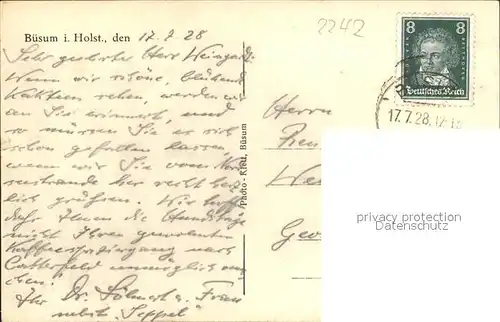 Büsum i. Holst., den 17. 7. 28
2242
Sehr geehrter Herr Weingardt.
Wenn wir schöne, blühende
Kakteen sehen, werden wir
an Sie erinnert, und
so müssen Sie es sich
schon gefallen lassen,
wenn wir Sie vom Nord-
seestrande her recht herz-
lich grüßen. Wir hoffen
daß Ihnen die Hundstage
nicht Ihren gewohnten
Kaffeespaziergang nach
unmöglich ma-
chen.
Ihr Dr. u. Frau
nebst "Seppel"
Photo - Rielt, Büsum
8 8
Deutsches Reich
17.7.28.
Herrn
privacy protection
Datenschutz